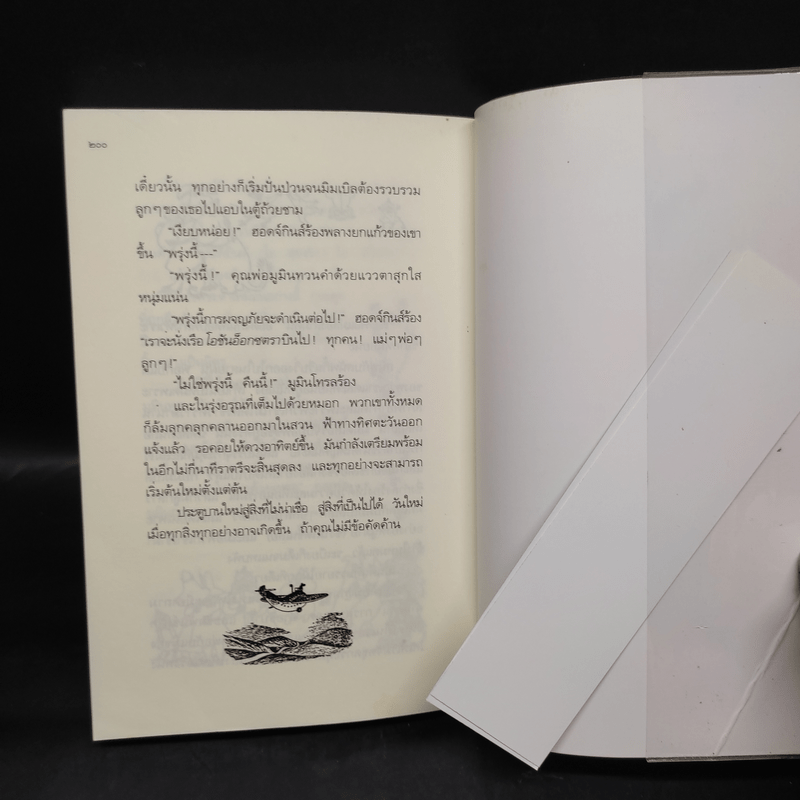 ๒๐๐
เดี๋ยวนั้น ทุกอย่างก็เริ่มปั่นป่วนจนมิมเบิลต้องรวบรวม
ลูกๆของเธอไปแอบในตู้ถ้วยชาม
"เงียบหน่อย!" ฮอดจ์กินส์ร้องพลางยกแก้วของเขา
ขึ้น "พรุ่งนี้---"
"พรุ่งนี้!" คุณพ่อมูมินทวนคำด้วยแววตาสุกใส
หนุ่มแน่น
"พรุ่งนี้การผจญภัยจะดำเนินต่อไป!" ฮอดจ์กินส์ร้อง
"เราจะนั่งเรือโอชันอ็อกซตราบินไป! ทุกคน! แม่ๆพ่อๆ
ลูกๆ!"
"ไม่ใช่พรุ่งนี้ คืนนี้!" มูมินโทรลร้อง
และในรุ่งอรุณที่เต็มไปด้วยหมอก พวกเขาทั้งหมด
ก็ล้มลุกคลุกคลานออกมาในสวน ฟ้าทางทิศตะวันออก
แจ้งแล้ว รอคอยให้ดวงอาทิตย์ขึ้น มันกำลังเตรียมพร้อม
ในอีกไม่กี่นาทีราตรีจะสิ้นสุดลง และทุกอย่างจะสามารถ
เริ่มต้นใหม่ตั้งแต่ต้น
ประตูบานใหม่สู่สิ่งที่ไม่น่าเชื่อ สู่สิ่งที่เป็นไปได้ วันใหม่
เมื่อทุกสิ่งทุกอย่างอาจเกิดขึ้น ถ้าคุณไม่มีข้อคัดค้าน